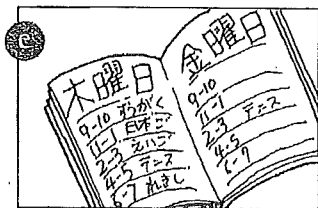 C
木曜日
9-10 すうがく
11-1 日本ご
2-3 えいご
4-5 テニス
6-7 れきし
金曜日
9-10
11-1
2-3 テニス
4-5
6-7